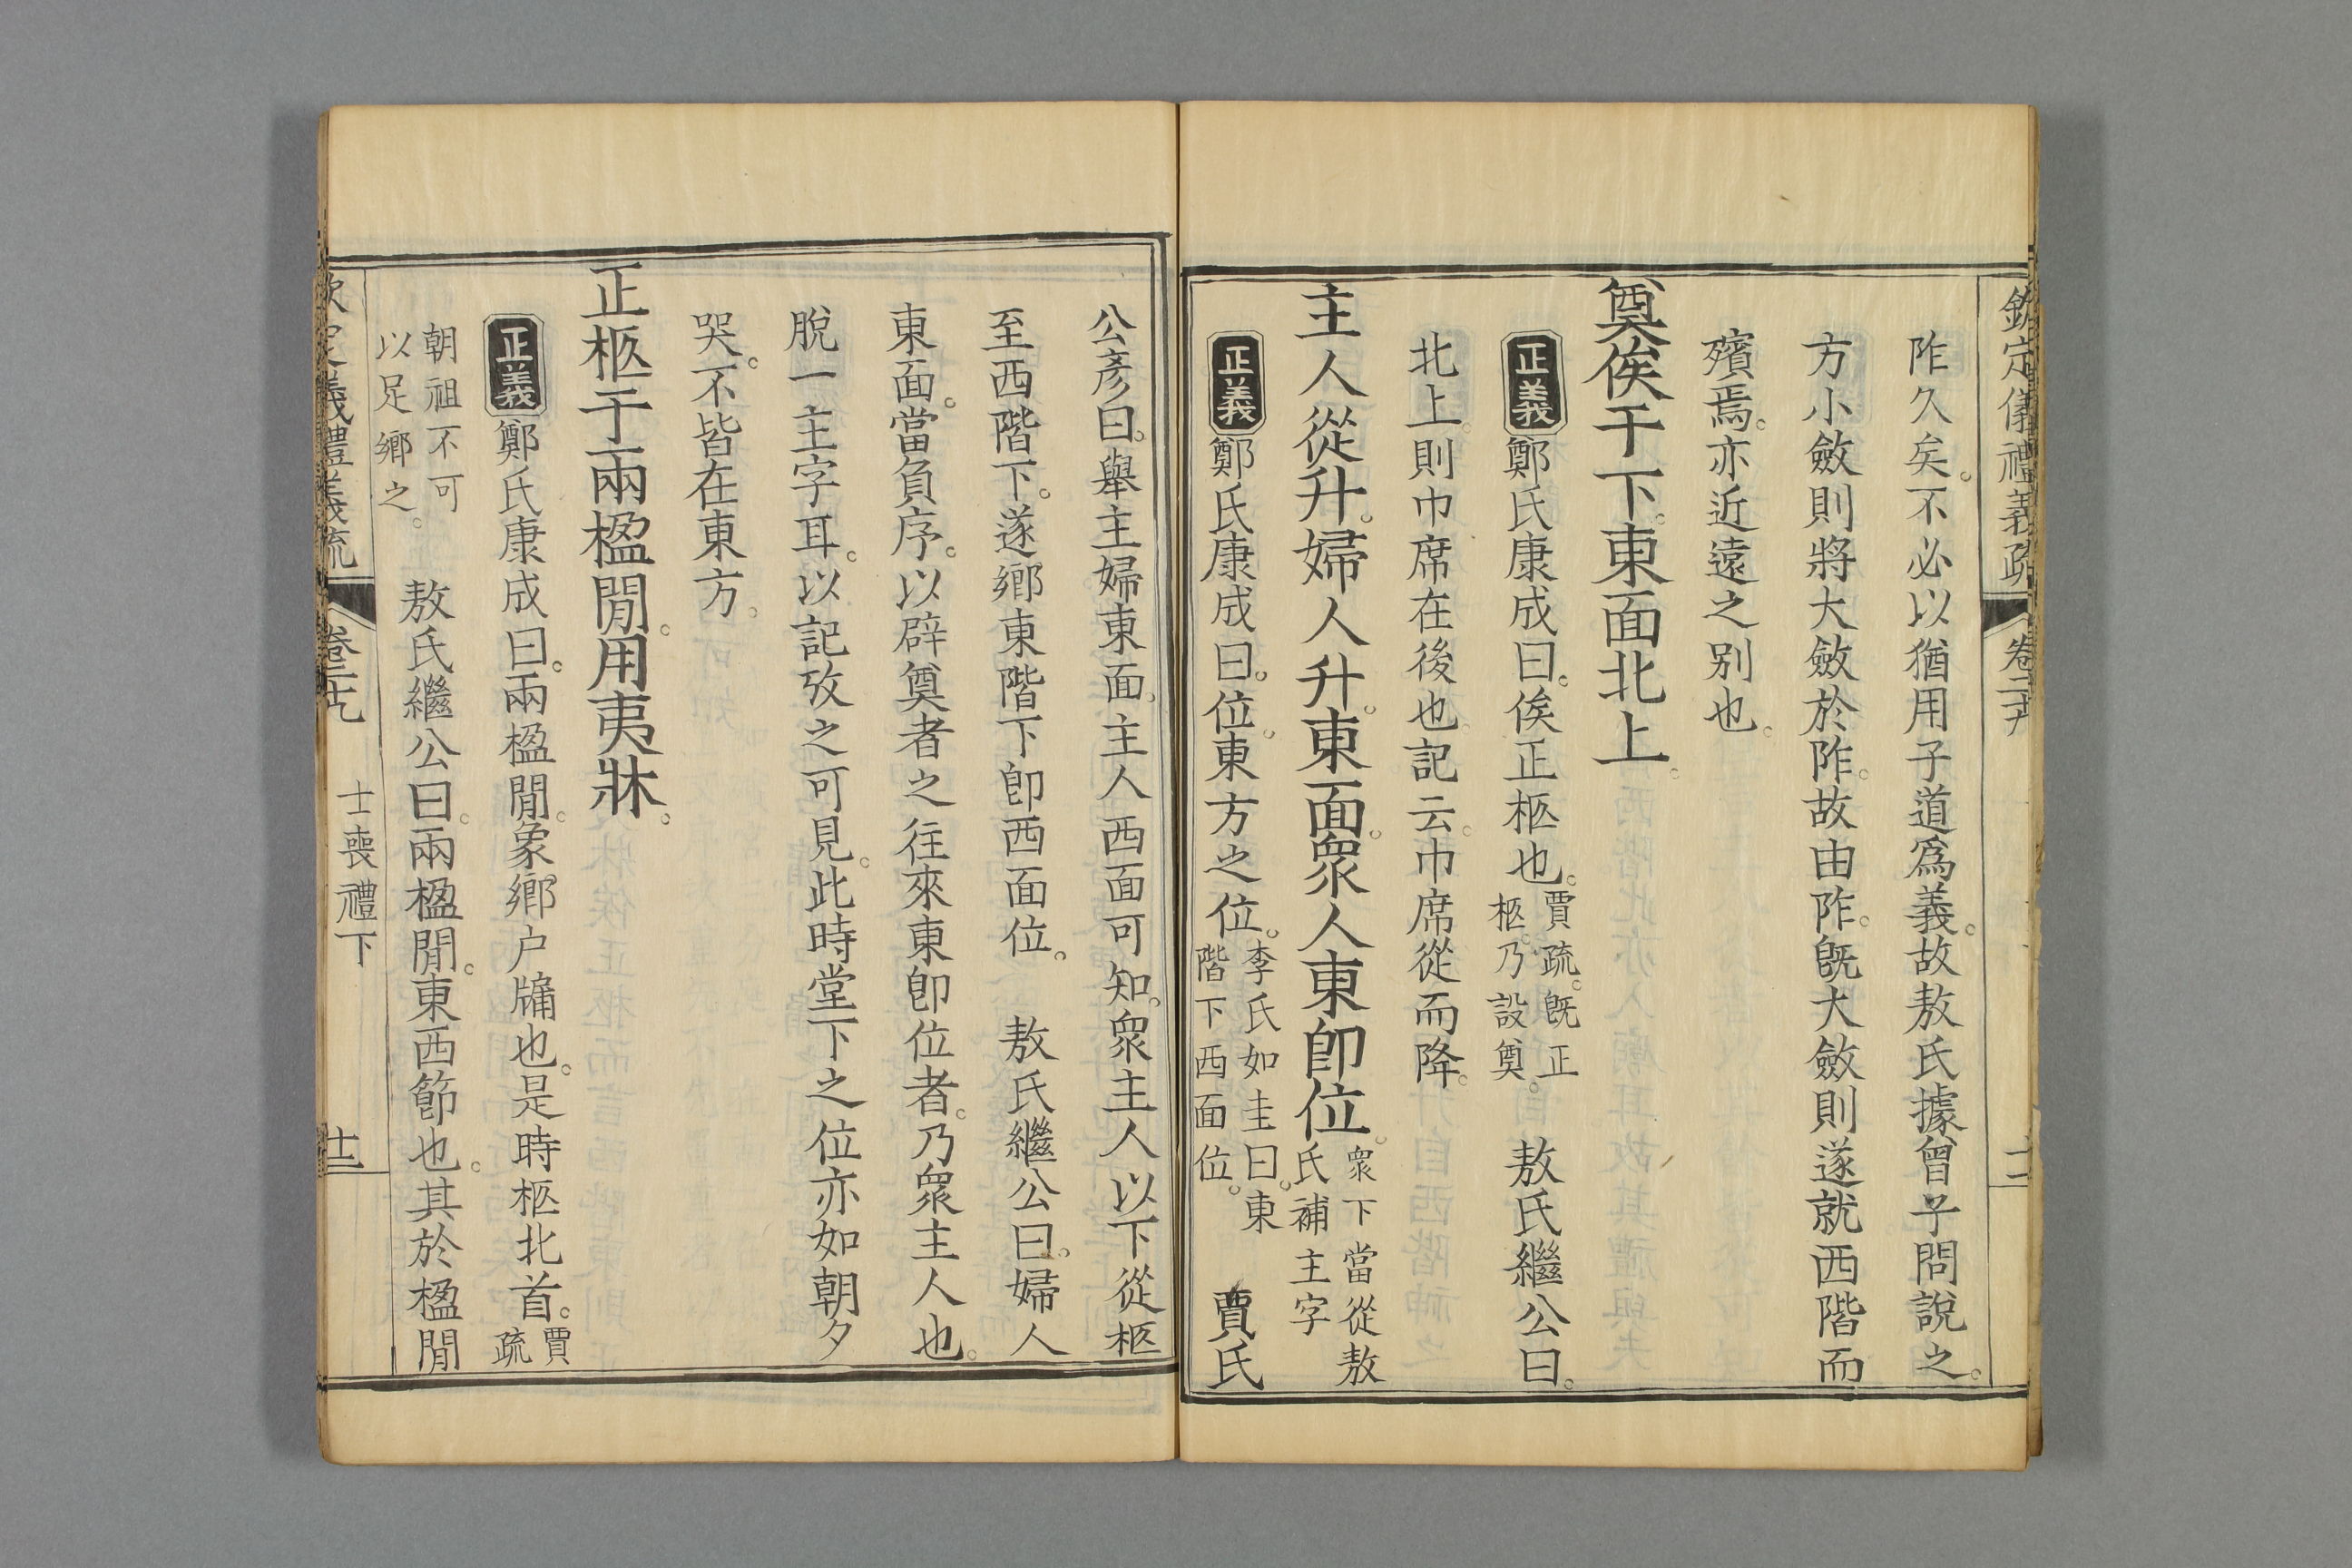 欽定儀禮義疏 卷二十九
阼久矣。不必以猶用子道爲義。故敖氏據曾子問說之。
方小斂則將大斂於阼。故由阼。旣大斂則遂就西階而
殯焉。亦近遠之别也。
奠俟于下。東面北上。
正義 鄭氏康成曰。俟正柩也。賈疏。旣正柩。乃設奠。 敖氏繼公曰。
北上。則巾席在後也。記云。巾席從而降。
主人從升。婦人升。東面。眾人東卽位。眾下當從敖氏補主字
正義 鄭氏康成曰。位。東方之位。李氏如圭曰。東階下西面位。 賈氏
公彥曰。舉主婦東面。主人西面可知。眾主人以下從柩
至西階下。遂鄉東階下卽西面位。 敖氏繼公曰。婦人
東面。當負序。以辟奠者之往來。東卽位者。乃眾主人也。
脫一主字耳。以記攷之可見。此時堂下之位亦如朝夕
哭。不皆在東方。
正柩于兩楹閒。用夷牀。
正義 鄭氏康成曰。兩楹閒。象鄉户牖也。是時柩北首。賈疏
朝祖不可以足鄉之。 敖氏繼公曰。兩楹閒。東西節也。其於楹閒
義禮義疏 士喪禮下 十二